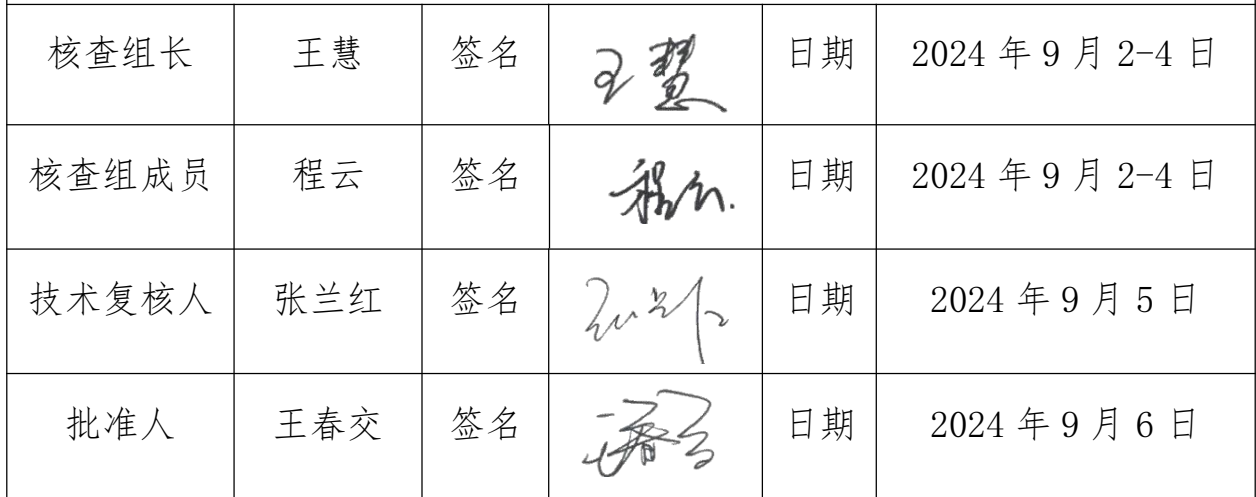 核查组长 王慧 签名 王慧 日期 2024年9月2-4日
核查组成员 程云 签名 程云. 日期 2024年9月2-4日
技术复核人 张兰红 签名 日期 2024年9月5日
批准人 王春交 签名 日期 2024年9月6日